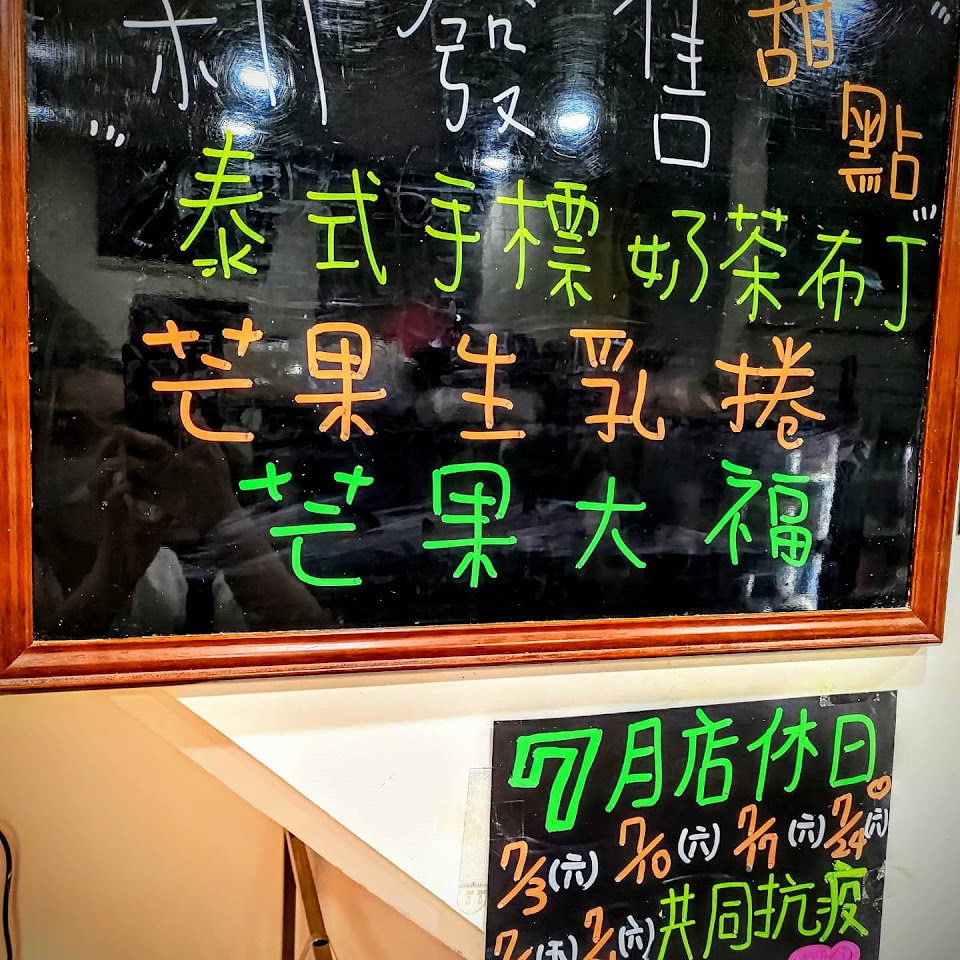 新發售甜點
泰式手標奶茶布丁
芒果生乳捲
芒果大福
7月店休日
7/3(六) 7/10(六) 7/17(六) 7/24(六)
共同抗疫